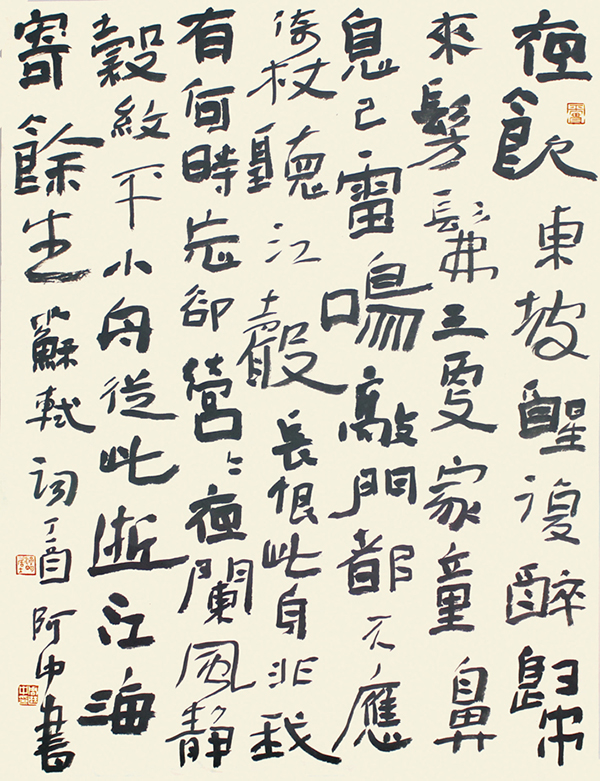 夜飲東坡醒復醉歸
來髣髴三更家童鼻
息已雷鳴敲門都不應
倚杖聽江聲長恨此身非我
有何時忘卻營〻夜闌風靜
縠紋平小舟從此逝江海
寄餘生蘇軾詞丁酉阿中書